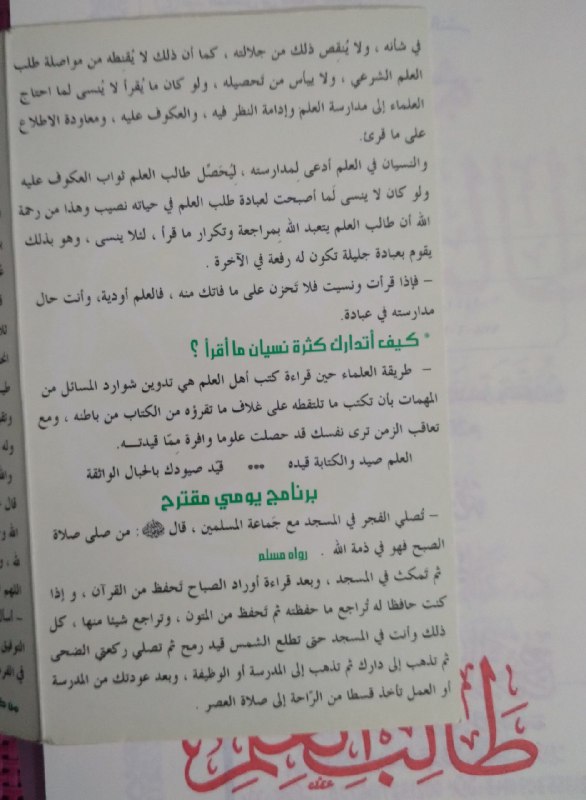 في شأنه ، ولا يُنقِص ذلك من جلالته ، كما أن ذلك لا يُقنطه من مواصلة طلب
العلم الشرعي ، ولا ييأس من تَحصيله ، ولو كان ما يُقرأ لا يُنسى لما احتاج
العلماء إلى مدارسة العلم وإدامة النظر فيه ، والعكوف عليه ، ومعاودة الاطلاع
على ما قرئ.
والنسيان في العلم أدعى لِمدارسته ، ليُحَصِّل طالب العلم ثواب العكوف عليه
ولو كان لا ينسى لَما أصبحت لعبادة طلب العلم في حياته نصيب وهذا من رحمة
الله أن طالب العلم يتعبد الله بِمراجعة وتكرار ما قرأ ، لئلا ينسى ، وهو بذلك
يقوم بعبادة جليلة تكون له رفعة في الآخرة .
– فإذا قرأت ونسيت فلا تَحزن على ما فاتك منه ، فالعلم أودية، وأنت حال
مدارسته في عبادة.
* كيف أتدارك كثرة نسيان ما أقرأ ؟
– طريقة العلماء حين قراءة كتب أهل العلم هي تدوين شوارد المسائل من
المهمات بأن تكتب ما تلتقطه على غلاف ما تقرؤه من الكتاب من باطنه ، ومع
تعاقب الزمن ترى نفسك قد حصلت علوما وافرة مِمَّا قيدتـــه.
العلم صيد والكتابة قيده *** قيِّد صيودك بالحبال الواثقة
برنامج يومي مقترح
– تُصلي الفجر في المسجد مع جَماعة المسلمين ، قال ﷺ : من صلى صلاة
الصبح فهو في ذمة الله . رواه مسلم
ثم تَمكث في المسجد ، وبعد قراءة أوراد الصباح تَحفظ من القرآن ، و إذا
كنت حافظا له تُراجع ما حفظته ثم تَحفظ من المتون ، وتراجع شيئا منها ، كل
ذلك وأنت في المسجد حتى تطلع الشمس قيد رمح ثم تصلي ركعتي الضحى
ثم تذهب إلى دارك ثم تذهب إلى المدرسة أو الوظيفة ، وبعد عودتك من المدرسة
أو العمل تأخذ قسطا من الرَّاحة إلى صلاة العصر .
طالب العلم